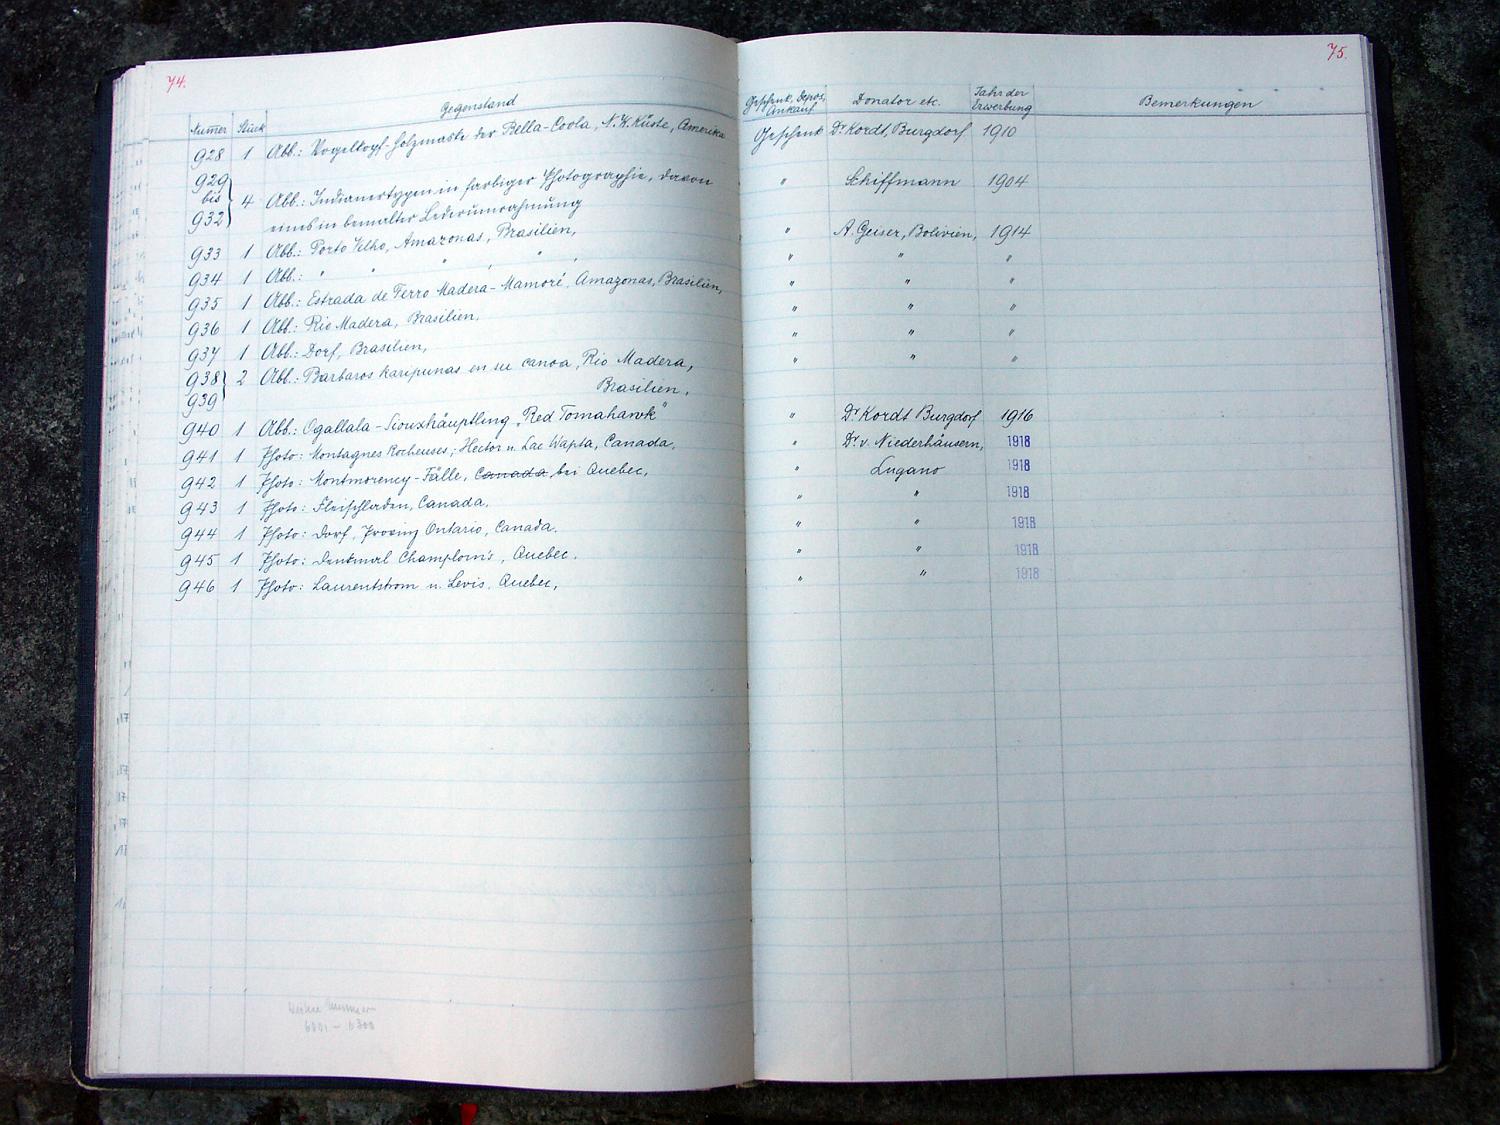 74.
Numer Stück Gegenstand
928 1 Abb.: Vogelkopf-Holzmaske der Bella-Coola, N.W. Küste, Amerika
929
bis 4 Abb.: Indianertypen in farbiger Photographie, davon
932 eines in bemalter Lederumrahmung
933 1 Abb.: Porto Velho, Amazonas, Brasilien,
934 1 Abb.: " " " " "
935 1 Abb.: Estrada de Ferro Madera-Mamoré, Amazonas, Brasilien,
936 1 Abb.: Rio Madera, Brasilien.
937 1 Abb.: Dorf, Brasilien,
938 2 Abb.: Barbaros Karipunas en su canoa, Rio Madera,
939 Brasilien,
940 1 Abb.: Ogallala-Siouxhäuptling „Red Tomahawk"
941 1 Photo: Montagnes Rocheuses; Hector u. Lac Wapta, Canada,
942 1 Photo: Montmorency-Fälle, Canada bei Quebec,
943 1 Photo: Fleischladen, Canada,
944 1 Photo: Dorf, Provinz Ontario, Canada.
945 1 Photo: Denkmal Champlain's, Quebec.
946 1 Photo: Laurentstrom u. Levis, Quebec,
Weitere Nummern
75.
Geschenk, Depos, Donator etc. Jahr der Bemerkungen
Ankauf Erwerbung
Geschenk Dr Kordt, Burgdorf 1910
" Schiffmann 1904
" A. Geiser, Bolivien, 1914
" " "
" " "
" " "
" " "
" " "
" Dr Kordt Burgdorf 1916
" Dr v. Niederhäusern, 1918
" Lugano 1918
" " 1918
" " 1918
" " 1918
" " 1918